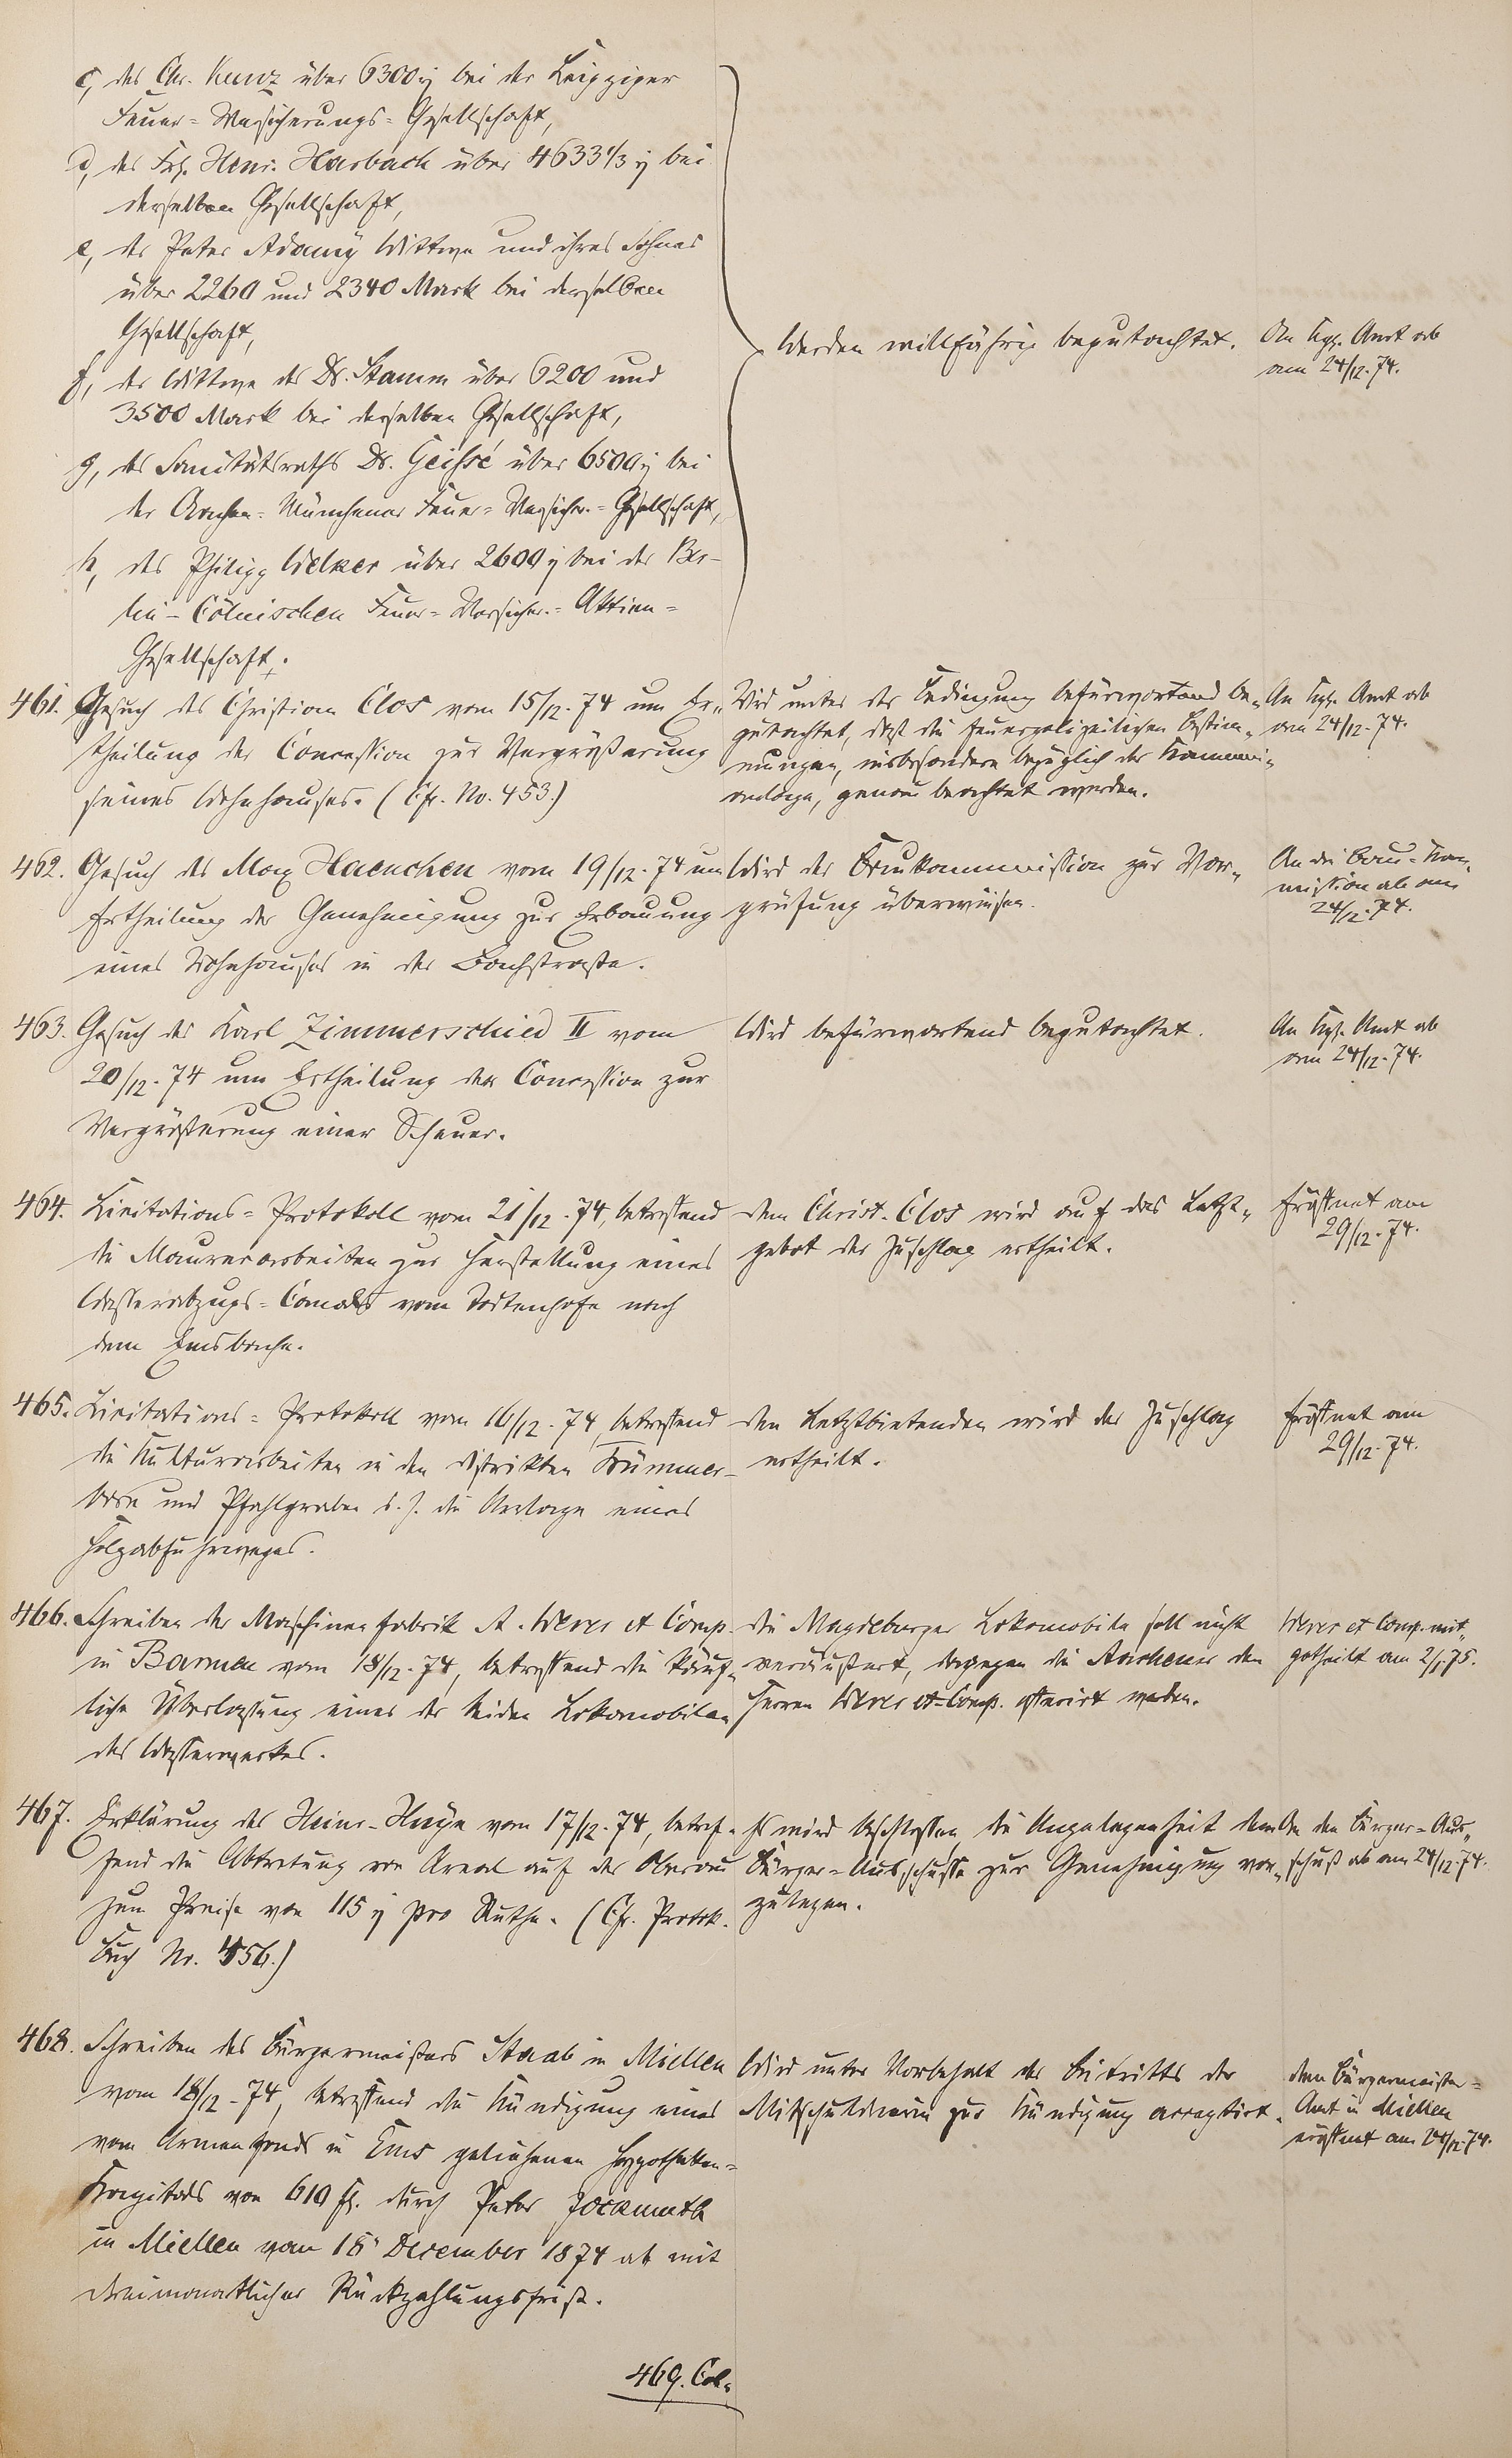 c, des Chr. Kunz über 6300 ÿ bei der Leipziger
Feuer=Versicherungs=Gesellschaft,
d, des Frz. Henr. Harbach über 4633 1/3 ÿ bei
derselben Gesellschaft,
e, der Peter Adamÿ Wittwe und ihres Sohnes
über 2260 und 2340 Mark bei derselben
Gesellschaft,
f, der Wittwe des Dr. Stamm über 6200 und
3500 Mark bei derselben Gesellschaft,
g, des Sanitätsraths Dr. Geissé über 6500 ÿ bei
der Aachen=Münchener Feuer=Versicher.=Gesellschaft,
h, des Philipp Welker über 2600 ÿ bei der Ber-
lin-Cölnischen Feuer=Versicher.=Aktien=
Gesellschaft.
Werden willfährig begutachtet.
An Kgl. Amt ab
am 24/12.74.
461. Gesuch des Christian Clos vom 15/12.74 um Er-
theilung der Concession zur Vergrößerung
seines Wohnhauses. (Cfr. No. 453.)
Wird unter der Bedingung befürwortend be-
gutachtet, daß die feuerpolizeilichen Bestim-
mungen, insbesondere bezüglich der Kamin-
anlage, genau beachtet werden.
An Kgl. Amt ab
am 24/12.74.
462. Gesuch des Max Haenchen vom 19/12.74 um
Ertheilung der Genehmigung zur Erbauung
eines Wohnhauses in der Bachstraße.
Wird der Baukommission zur Vor-
prüfung überwiesen.
An die Bau=Kom-
mission ab am
24/12.74.
463. Gesuch des Karl Zimmerschied II vom
20/12.74 um Ertheilung der Concession zur
Vergrößerung einer Scheuer.
Wird befürwortend begutachtet.
An Kgl. Amt ab
am 24/12.74.
464. Licitations=Protokoll vom 21/12.74, betreffend
die Maurerarbeiten zur Herstellung eines
Wasserabzugs=Canals vom Todtenhofe nach
dem Emsbache.
Dem Christ. Clos wird auf das Letzt-
gebot der Zuschlag ertheilt.
Eröffnet am
29/12.74.
465. Licitations=Protokoll vom 16/12.74, betreffend
die Kulturarbeiten in den Distrikten Krümmer-
born und Pfahlgraben b. h. die Anlage eines
Holzabfuhrweges.
Den Letztbietenden wird der Zuschlag
ertheilt.
Eröffnet am
29/12.74.
466. Schreiben der Maschinenfabrik A. Wever et Comp.
in Barmen vom 18/12.74, betreffend die käuf-
liche Überlassung eines der beiden Lokomobilen
des Wasserwerkes.
Die Magdeburger Lokomobile soll nicht
veräußert, dagegen die Aachener den
Herren Wever et Comp. offerirt werden.
Wever et Comp. mit-
getheilt am 2/1.75.
467. Erklärung des Heinr. Huÿn vom 17/12.74, betref-
fend die Abtretung von Areal auf der Oberau
zum Preise von 115 ÿ pro Ruthe. (Cfr. Protok.
Buch Nr. 456.)
Es wird beschlossen, die Angelegenheit dem
Bürger=Ausschusse zur Genehmigung vor-
zulegen.
An den Bürger=Aus-
schuß ab am 24/12.74.
468. Schreiben des Bürgermeisters Staab in Miellen
vom 18/12.74, betreffend die Kündigung eines
vom Armenfonds in Ems geliehenen Hypotheken=
Kapitals von 610 fl. durch Peter
in Miellen vom 18 December 1874 ab mit
dreimonatlicher Rückzahlungsfrist.
Wird unter Vorbehalt des Beitritts der
Mitschuldnerin zur Kündigung acceptirt.
Dem Bürgermeister=
Amt in Miellen
eröffnet am 24/12.74.
469. Col.